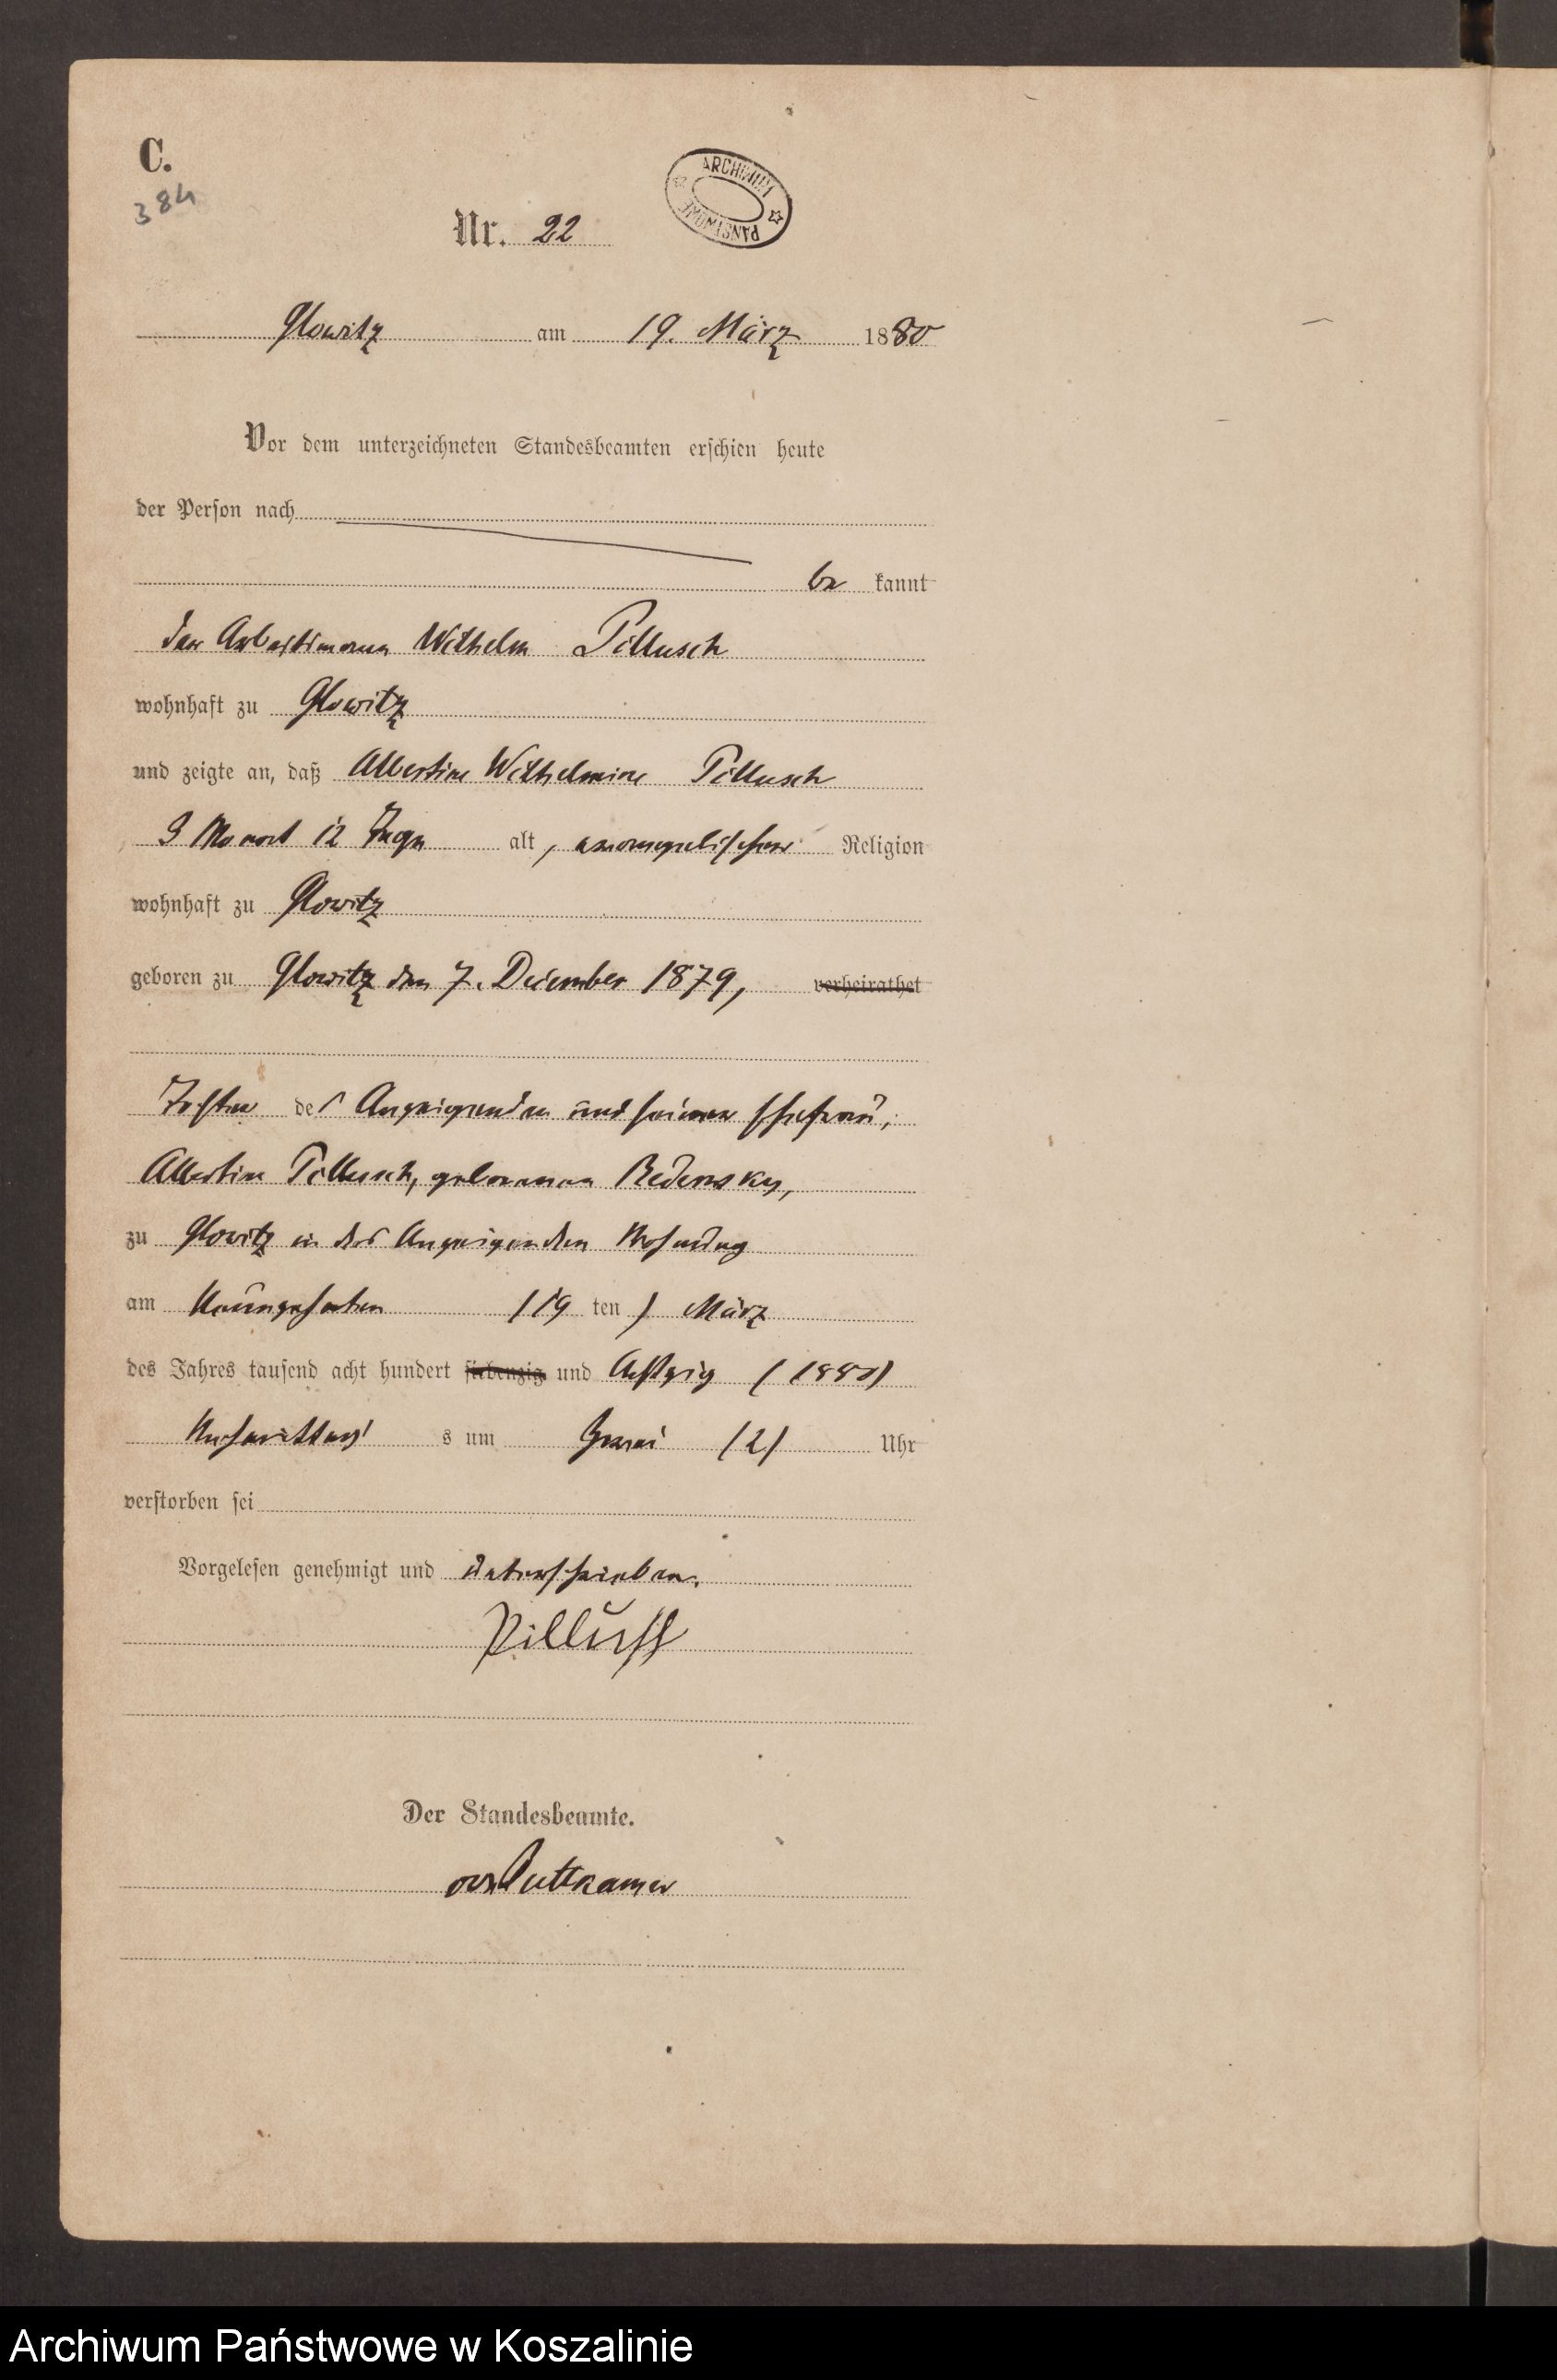 C.
384
ARCHIWUM PAŃSTWOWE
Nr. 22
Glowitz am 19. März 1880
Vor dem unterzeichneten Standesbeamten erschien heute
der Person nach
be kannt
der Arbeitsmann Wilhelm Pillusch
wohnhaft zu Glowitz
und zeigte an, daß Albertine Wilhelmine Pillusch
3 Monat 12 Tage alt, evangelischer Religion
wohnhaft zu Glowitz
geboren zu Glowitz den 7. December 1879, verheirathet
Tochter des Anzeigenden und seiner Ehefrau,
Albertine Pillusch, geborenen
zu Glowitz in des Anzeigenden Wohnung
am Neunzehnten (19 ten) März
des Jahres tausend acht hundert siebenzig und Achtzig (1880)
Nachmittags s um Zwei (2) Uhr
verstorben sei
Vorgelesen genehmigt und unterschrieben.
Pillusch
Der Standesbeamte.
von Puttkamer
Archiwum Państwowe w Koszalinie